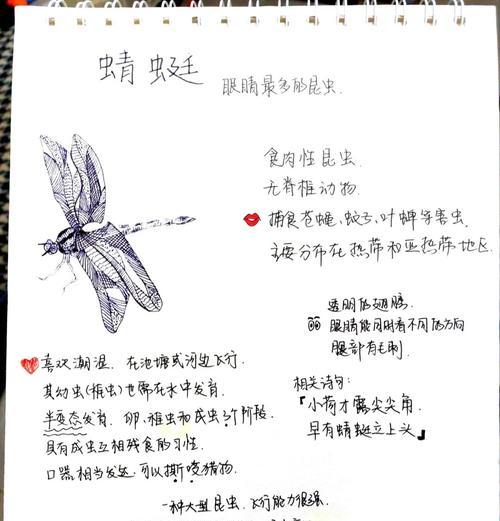 蜻蜓
眼睛最多的昆虫.
食肉性昆虫.
无脊椎动物.
捕食苍蝇,蚊子,叶蝉等害虫.
主要分布在热带和亚热带地区.
透明的翅膀.
眼睛能同时看不同的方向
腿部有毛刺.
喜欢潮湿.在池塘或河边飞行.
其幼虫(稚虫)也需在水中发育.
半变态发育.卵、稚虫和成虫3个阶段.
具有成虫互相残食的习性.
口器相当发达,可以撕咬猎物.
相关诗句:
「小荷才露尖尖角.
早有蜻蜓立上头」
一种大型昆虫.飞行能力很强.